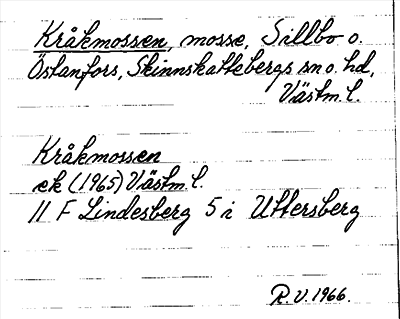 Kråkmossen, mosse, Sillbo o.
Östanfors, Skinnskattebergs sn o. hd,
Västm. l.
Kråkmossen
ek (1965) Västm. l.
11 F Lindesberg 5 i Uttersberg
R.V. 1966.